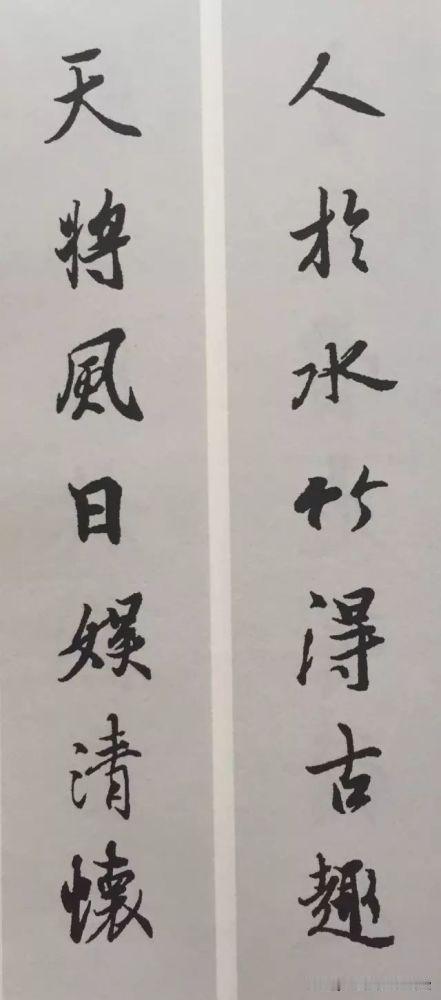 人於水竹得古趣
天將風日娱清懷